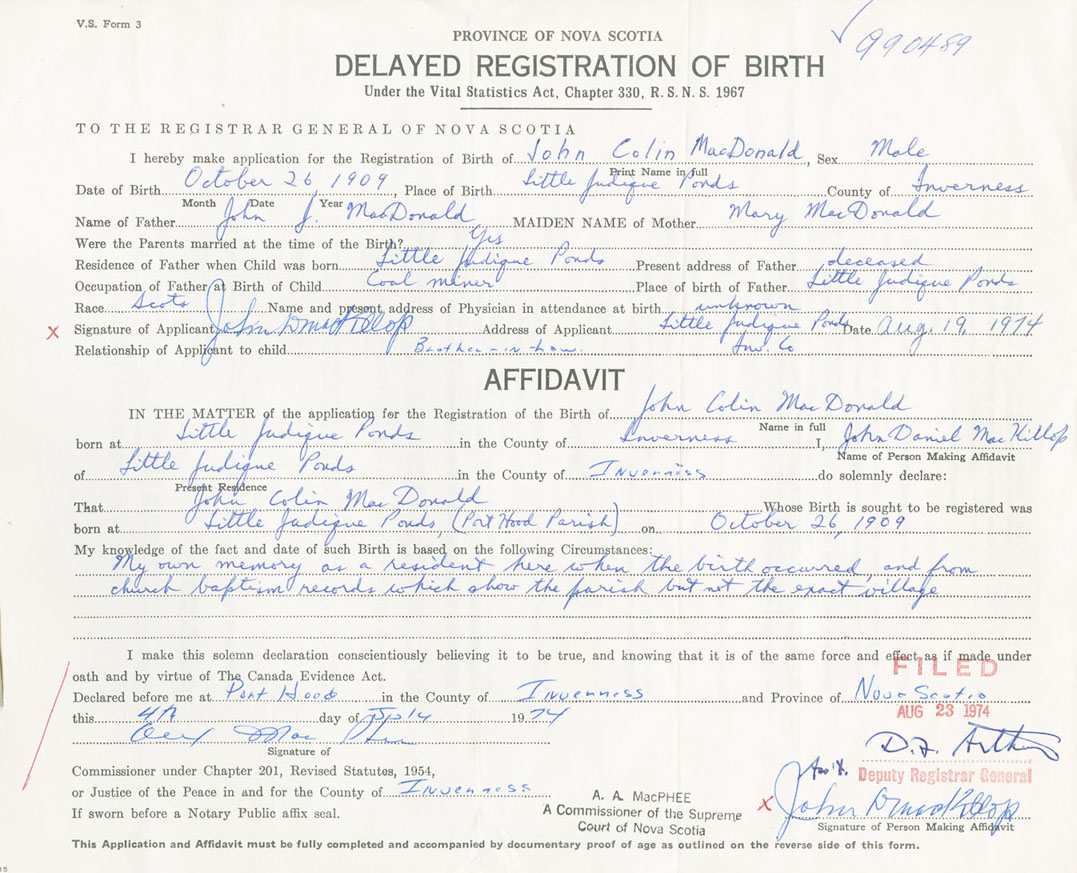 V.S. Form 3
990489
PROVINCE OF NOVA SCOTIA
DELAYED REGISTRATION OF BIRTH
Under the Vital Statistics Act, Chapter 330, R. S. N. S. 1967
TO THE REGISTRAR GENERAL OF NOVA SCOTIA
I hereby make application for the Registration of Birth of John Colin MacDonald, Sex Male
Print Name in full
Date of Birth October 26, 1909, Place of Birth Little Judique Ponds County of Inverness
Month Date Year
Name of Father John J. MacDonald MAIDEN NAME of Mother Mary MacDonald
Were the Parents married at the time of the Birth? Yes
Residence of Father when Child was born Little Judique Ponds Present address of Father deceased
Occupation of Father at Birth of Child Coal miner Place of birth of Father Little Judique Ponds
Race Scots Name and present address of Physician in attendance at birth unknown
x Signature of Applicant John D MacKillop Address of Applicant Little Judique Ponds Date Aug. 19, 1974
Relationship of Applicant to child Brother-in-law. Inv. Co
AFFIDAVIT
IN THE MATTER of the application for the Registration of the Birth of John Colin MacDonald
Name in full
born at Little Judique Ponds in the County of Inverness I, John Daniel MacKillop
Name of Person Making Affidavit
of Little Judique Ponds in the County of Inverness do solemnly declare:
Present Residence
That John Colin MacDonald Whose Birth is sought to be registered was
born at Little Judique Ponds, (Port Hood Parish) on October 26, 1909
My knowledge of the fact and date of such Birth is based on the following Circumstances:
My own memory as a resident here when the birth occurred, and from
church baptism records which show the parish but not the exact village
I make this solemn declaration conscientiously believing it to be true, and knowing that it is of the same force and effect as if made under
oath and by virtue of The Canada Evidence Act.
FILED
Declared before me at Port Hood in the County of Inverness and Province of Nova Scotia
AUG 23 1974
this day of 1974
D.J.
Signature of
Commissioner under Chapter 201, Revised Statutes, 1954,
Deputy Registrar General
or Justice of the Peace in and for the County of Inverness
A. A. MacPHEE
x John D MacKillop
If sworn before a Notary Public affix seal.
A Commissioner of the Supreme
Court of Nova Scotia
Signature of Person Making Affidavit
This Application and Affidavit must be fully completed and accompanied by documentary proof of age as outlined on the reverse side of this form.